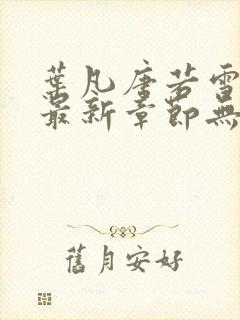 葉凡唐若雪
最新章節無
舊月安好